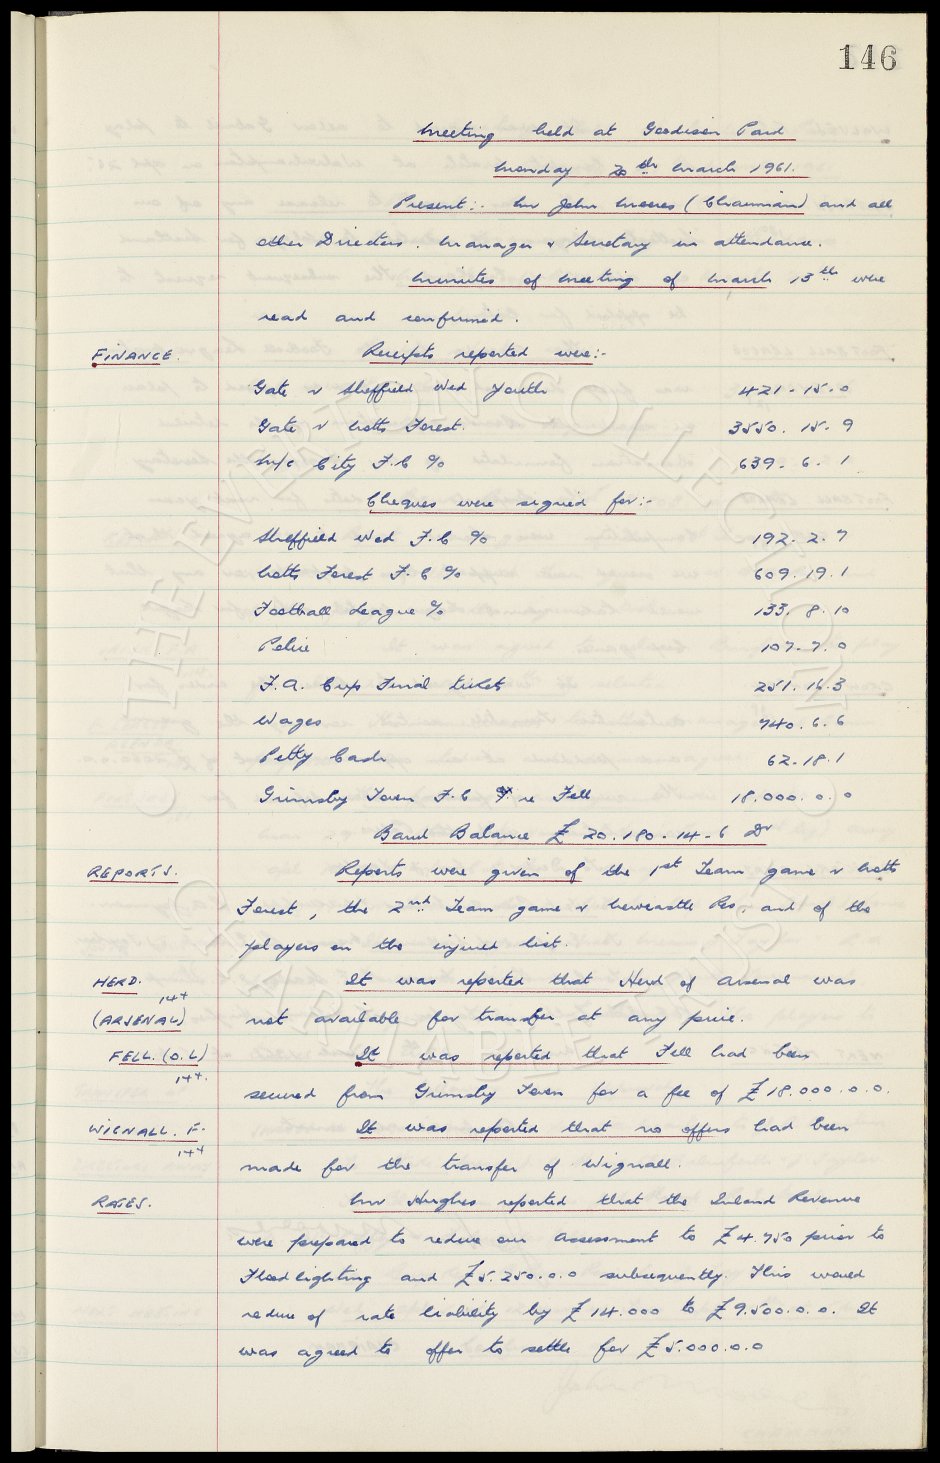 146
Meeting held at Goodison Park
Monday 20th March 1961.
Present:- Mr John Moores (Chairman) and all
other Directors. Manager & Secretary in attendance.
Minutes of Meeting of March 13th were
read and confirmed.
FINANCE. Receipts reported were:-
Gate v Sheffield Wed Youth 421-15-0
Gate v Notts Forest. 3550. 15. 9
M/c City F.C % 639. 6. 1
Cheques were signed for:-
Sheffield Wed F.C % 192. 2. 7
Notts Forest F.C % 609. 19. 1
Football League % 133. 8. 10
Police 107. 7. 0
F.A. Cup Final tickets 251. 16. 3
Wages 740. 6. 6
Petty Cash 62. 18. 1
Grimsby Town F.C re Fell 18.000. 0. 0
Bank Balance £ 20.180-14-6 Dr
REPORTS. Reports were given of the 1st Team game v Notts
Forest, the 2nd Team game v Newcastle Res. and of the
players on the injured list.
HERD. It was reported that Herd of Arsenal was
14+
(ARSENAL) not available for transfer at any price.
FELL. (O.L) It was reported that Fell had been
14+.
secured from Grimsby Town for a fee of £18.000.0.0.
WIGNALL. F. It was reported that no offers had been
14+
made for the transfer of Wignall.
RATES. Mr Hughes reported that the Inland Revenue
were prepared to reduce our assessment to £4.750 prior to
Floodlighting and £5.250.0.0 subsequently. This would
reduce of rate liability by £14.000 to £9.500.0.0. It
was agreed to offer to settle for £5.000.0.0
THE EVERTON COLLECTION
CHARITABLE TRUST